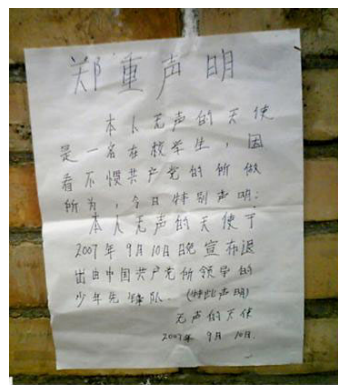 郑重声明
本人无声的天使
是一名在校学生，因
看不惯共产党的所做
所为，今日特别声明：
本人无声的天使于
2007年9月10日晚宣布退
出由中国共产党所领导的
少年先锋队.（特此声明）
无声的天使
2007年9月10日.